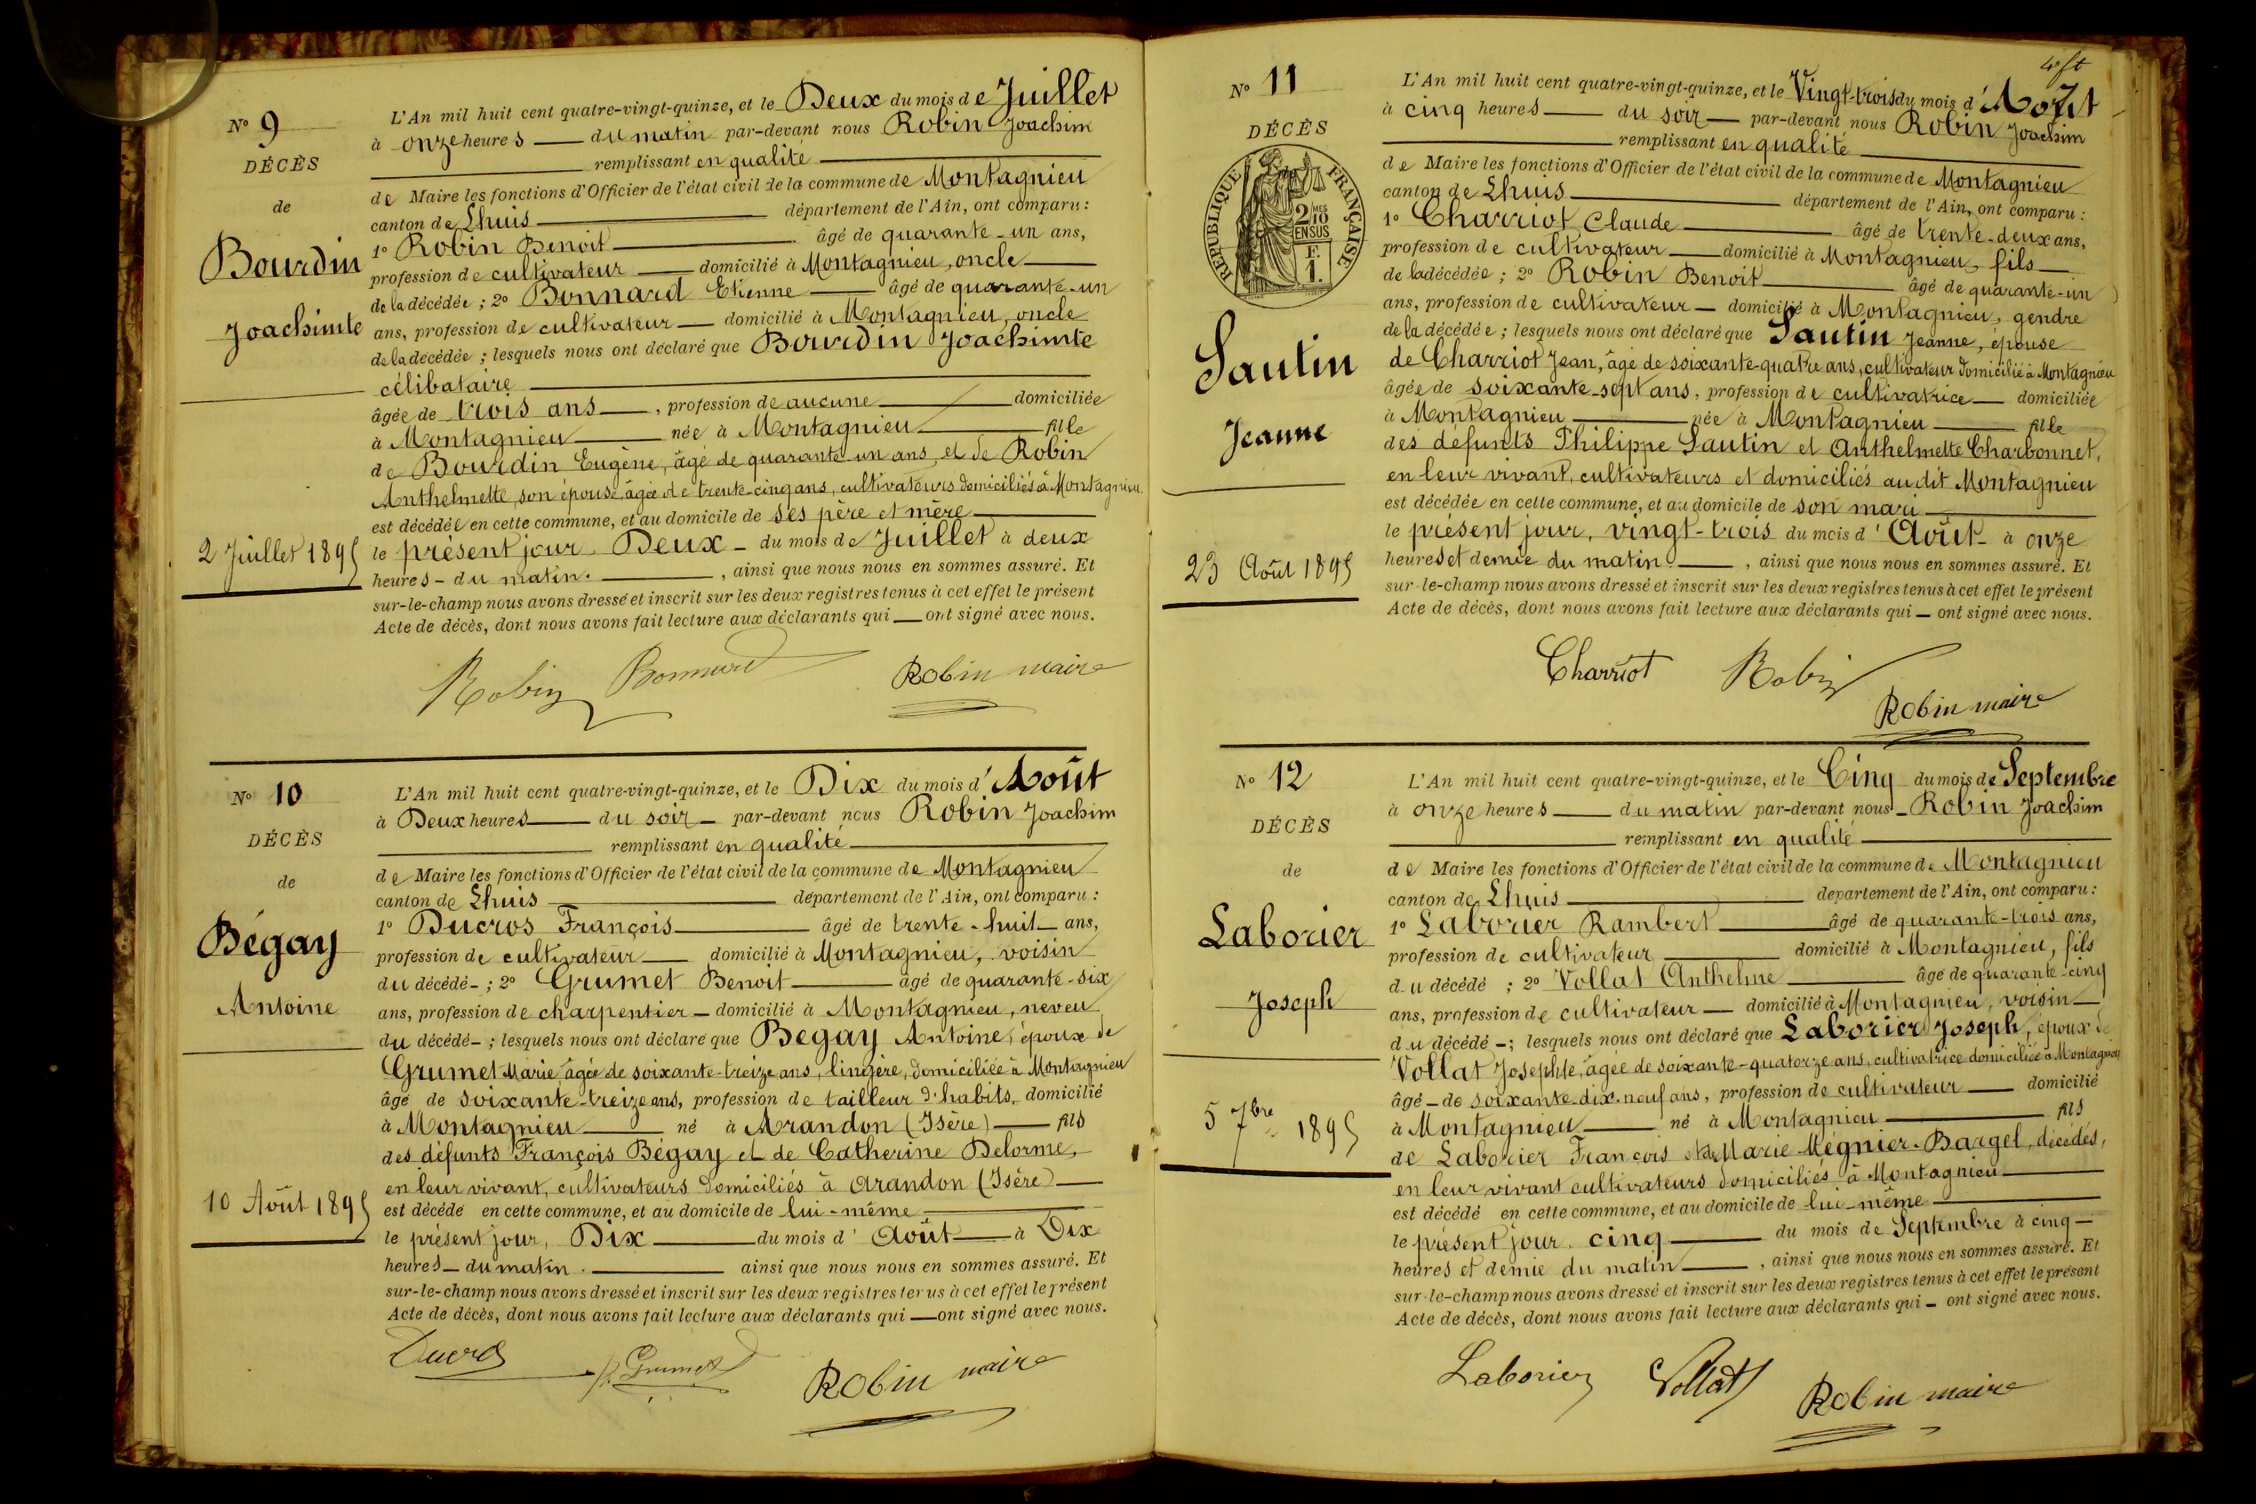 N° 9
DÉCÈS
de
Bourdin
Joachimte
2 Juillet 1895
L'An mil huit cent quatre-vingt-quinze, et le Deux du mois de Juillet
à onze heures — du matin par-devant nous Robin Joachim
remplissant en qualité
de Maire les fonctions d'Officier de l'état civil de la commune de Montagnieu
canton de Lhuis — département de l'Ain, ont comparu :
1° Robin Benoit — âgé de quarante-un ans,
profession de cultivateur — domicilié à Montagnieu, oncle
de la décédée ; 2° Bonnard Etienne — âgé de quarante-un
ans, profession de cultivateur — domicilié à Montagnieu, oncle
de la décédée ; lesquels nous ont déclaré que Bourdin Joachimte
célibataire
âgée de trois ans —, profession de aucune — domiciliée
à Montagnieu — née à Montagnieu — fille
de Bourdin Eugène, âgé de quarante-un ans, et de Robin
Anthelmette, son épouse, âgée de trente-cinq ans, cultivateurs domiciliés à Montagnieu
est décédée en cette commune, et au domicile de ses père et mère
le présent jour, Deux - du mois de Juillet à deux
heures - du matin. —, ainsi que nous nous en sommes assuré. Et
sur-le-champ nous avons dressé et inscrit sur les deux registres tenus à cet effet le présent
Acte de décès, dont nous avons fait lecture aux déclarants qui — ont signé avec nous.
Robin Bonnard Robin maire
N° 10
DÉCÈS
de
Bégay
Antoine
10 Août 1895
L'An mil huit cent quatre-vingt-quinze, et le Dix du mois d'Août
à Deux heures — du soir — par-devant nous Robin Joachim
remplissant en qualité
de Maire les fonctions d'Officier de l'état civil de la commune de Montagnieu
canton de Lhuis — département de l'Ain, ont comparu :
1° Ducros François — âgé de trente-huit — ans,
profession de cultivateur — domicilié à Montagnieu, voisin
du décédé - ; 2° Grumet Benoit — âgé de quarante-six
ans, profession de charpentier — domicilié à Montagnieu, neveu
du décédé - ; lesquels nous ont déclaré que Bégay Antoine, époux de
Grumet Marie, âgée de soixante-treize ans, lingère, domiciliée à Montagnieu
âgé de soixante-treize ans, profession de tailleur d'habits, domicilié
à Montagnieu — né à Arandon (Isère) — fils
des défunts François Bégay et de Catherine Delorme,
en leur vivant, cultivateurs domiciliés à Arandon (Isère) —
est décédé en cette commune, et au domicile de lui-même
le présent jour, Dix — du mois d' Août — à Dix
heures — du matin. — ainsi que nous nous en sommes assuré. Et
sur-le-champ nous avons dressé et inscrit sur les deux registres tenus à cet effet le présent
Acte de décès, dont nous avons fait lecture aux déclarants qui — ont signé avec nous.
Ducros Grumet Robin maire
N° 11
DÉCÈS
RÉPUBLIQUE FRANÇAISE
2/10MES
EN SUS
F.
1.
Sautin
Jeanne
23 Août 1895
L'An mil huit cent quatre-vingt-quinze, et le Vingt-trois du mois d'Août
à cinq heures — du soir — par-devant nous Robin Joachim
remplissant en qualité
de Maire les fonctions d'Officier de l'état civil de la commune de Montagnieu
canton de Lhuis — département de l'Ain, ont comparu :
1° Charriot Claude — âgé de trente-deux ans,
profession de cultivateur — domicilié à Montagnieu, fils —
de la décédée ; 2° Robin Benoit — âgé de quarante-un
ans, profession de cultivateur — domicilié à Montagnieu, gendre
de la décédée ; lesquels nous ont déclaré que Sautin Jeanne, épouse
de Charriot Jean, âgé de soixante-quatre ans, cultivateur domicilié à Montagnieu
âgée de soixante-sept ans, profession de cultivatrice — domiciliée
à Montagnieu — née à Montagnieu — fille
des défunts Philippe Sautin et Anthelmette Charbonnet,
en leur vivant, cultivateurs et domiciliés au dit Montagnieu
est décédée en cette commune, et au domicile de son mari
le présent jour, vingt-trois du mois d' Août - à onze
heures et demie du matin. —, ainsi que nous nous en sommes assuré. Et
sur-le-champ nous avons dressé et inscrit sur les deux registres tenus à cet effet le présent
Acte de décès, dont nous avons fait lecture aux déclarants qui — ont signé avec nous.
Charriot Robin
Robin maire
N° 12
DÉCÈS
de
Laborier
Joseph
5 7bre 1895
L'An mil huit cent quatre-vingt-quinze, et le Cinq du mois de Septembre
à onze heures — du matin par-devant nous - Robin Joachim
remplissant en qualité
de Maire les fonctions d'Officier de l'état civil de la commune de Montagnieu
canton de Lhuis — département de l'Ain, ont comparu :
1° Laborier Rambert — âgé de quarante-trois ans,
profession de cultivateur — domicilié à Montagnieu, fils
du décédé ; 2° Vollat Anthelme — âgé de quarante-cinq
ans, profession de cultivateur — domicilié à Montagnieu, voisin —
du décédé - ; lesquels nous ont déclaré que Laborier Joseph, époux de
Vollat Josephte, âgée de soixante-quatorze ans, cultivatrice domiciliée à Montagnieu
âgé - de soixante-dix-neuf ans, profession de cultivateur — domicilié
à Montagnieu — né à Montagnieu — fils
de Laborier François et de Marie Mégnier-Bargel, décédés,
en leur vivant cultivateurs domiciliés à Montagnieu —
est décédé en cette commune, et au domicile de lui-même
le présent jour, cinq — du mois de Septembre à cinq —
heures et demie du matin —, ainsi que nous nous en sommes assuré. Et
sur-le-champ nous avons dressé et inscrit sur les deux registres tenus à cet effet le présent
Acte de décès, dont nous avons fait lecture aux déclarants qui — ont signé avec nous.
Laborier Vollat Robin maire